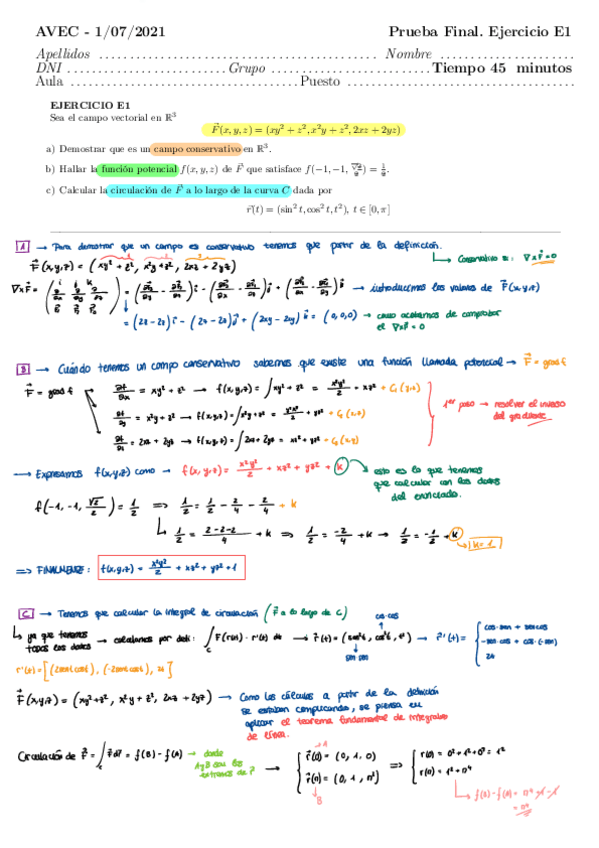 AVEC - 1/07/2021 Prueba Final. Ejercicio E1
Apellidos ................................................ Nombre ........................
DNI ............................ Grupo ............................ Tiempo 45 minutos
Aula ........................................ Puesto ........................................
EJERCICIO E1
Sea el campo vectorial en ℝ³
F⃗(x, y, z) = (xy² + z², x²y + z², 2xz + 2yz)
a) Demostrar que es un campo conservativo en ℝ³.
b) Hallar la función potencial f(x, y, z) de F⃗ que satisface f(−1, −1, √2/2) = 1/2.
c) Calcular la circulación de F⃗ a lo largo de la curva C dada por
r⃗(t) = (sin² t, cos² t, t²), t ∈ [0, π]
A → Para demostrar que un campo es conservativo tenemos que partir de la definición.
↳ Conservativo es: ∇xF⃗=0
F⃗(x,y,z) = (xy² + z², x²y + z², 2xz + 2yz)
→ introducimos los valores de F⃗(x,y,z)
= (2z - 2z)i⃗ - (2z - 2z)j⃗ + (2xy - 2xy)k⃗ = (0,0,0) → como acabamos de comprobar
el ∇xF⃗ = 0
B → Cuándo tenemos un campo conservativo sabemos que existe una función llamada potencial → F⃗ = grad f
F⃗ = grad f
∂f/∂x = xy² + z² → f(x,y,z) = ∫xy² + z² = x²y²/2 + xz² + C₁(y,z)
∂f/∂y = x²y + z² → f(x,y,z) = ∫x²y + z² = x²y²/2 + yz² + C₂(x,z)
∂f/∂z = 2xz + 2yz → f(x,y,z) = ∫2xz + 2yz = xz² + yz² + C₃(x,y)
1er paso → resolver el inverso
del gradiente
→ Expresamos f(x,y,z) como → f(x,y,z) = x²y²/2 + xz² + yz² + k
esto es lo que tenemos
que calcular con los datos
del enunciado.
f(-1, -1, √2/2) = 1/2 ⇒ 1/2 = 1/2 - 2/4 - 2/4 + k
↳ 1/2 = (2-2-2)/4 + k ⇒ 1/2 = -2/4 + k → 1/2 = -1/2 + k
k = 1
⇒ FINALMENTE: f(x,y,z) = x²y²/2 + xz² + yz² + 1
C → Tenemos que calcular la integral de circulación (F⃗ a lo largo de C)
↳ ya que tenemos
todos los datos
→ calculamos por def: ∫F(r(t)) · r'(t) dt → r⃗(t) = (sen²t, cos²t, t²) → r⃗'(t) =
F⃗(x,y,z) = (xy²+z², x²y + z², 2xz + 2yz) → Como los cálculos a partir de la definición
se estaban complicando, se piensa en
aplicar el teorema fundamental de integrales
de línea.
Circulación de F⃗ = ∫F⃗dr⃗ = f(B) - f(A) → donde
A y B son los
extremos de r⃗
r⃗(0) = (0, 1, 0)
r⃗(π) = (0, 1, π²)